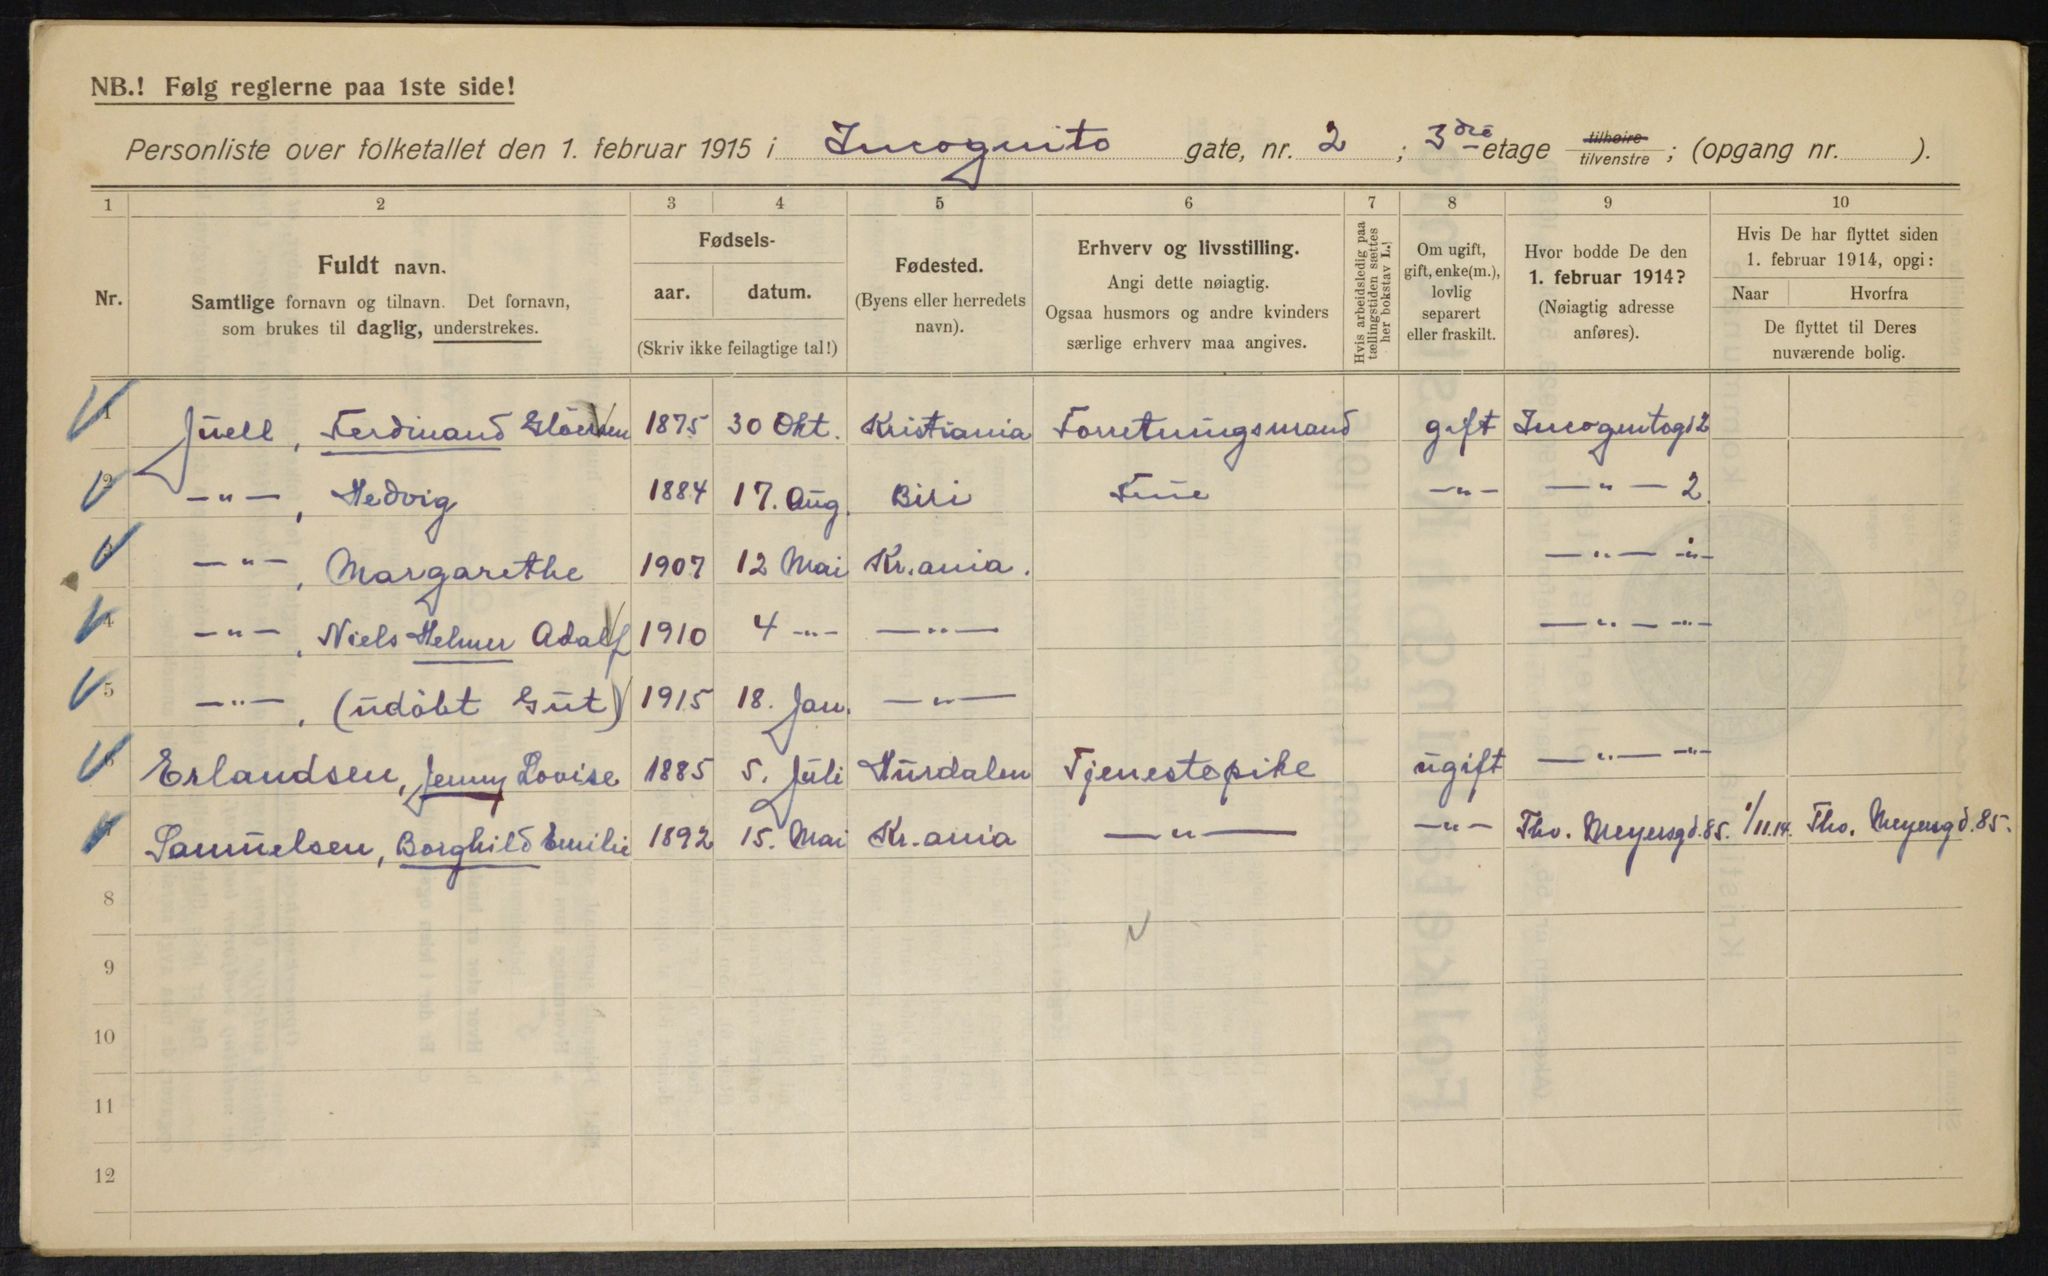 NB.! Følg reglerne paa 1ste side!
Personliste over folketallet den 1. februar 1915 i Incognito gate, nr. 2 ; 3die etage tilhøire tilvenstre ; (opgang nr. ).
1 2 3 4 5 6 7 8 9 10
Nr.
Fuldt navn.
Samtlige fornavn og tilnavn. Det fornavn,
som brukes til daglig, understrekes.
Fødsels-
aar. datum.
(Skriv ikke feilagtige tal!)
Fødested.
(Byens eller herredets
navn).
Erhverv og livsstilling.
Angi dette nøiagtig.
Ogsaa husmors og andre kvinders
særlige erhverv maa angives.
Hvis arbeidsledig paa
tællingstiden sættes
her bokstav L.!
Om ugift,
gift, enke(m.),
lovlig
separert
eller fraskilt.
Hvor bodde De den
1. februar 1914?
(Nøiagtig adresse
anføres).
Hvis De har flyttet siden
1. februar 1914, opgi:
Naar Hvorfra
De flyttet til Deres
nuværende bolig.
1 Juell, Ferdinand 1875 30 Okt. Kristiania Forretningsmand gift Incognitogd 2
2 —"—, Hedvig 1884 17. Aug. Biri Frue —"— —"— 2
3 —"—, Margarethe 1907 12 Mai Kr.ania. —"— —"—
4 —"—, Niels Helmer Adolf 1910 4 —"— —"— —"— —"—
5 —"—, (udöbt Gut) 1915 18. Jan. —"—
6 Erlandsen, Jenny Lovise 1885 5. Juli Hurdalen Tjenestepike ugift —"— —"—
7 Samuelsen, Borghild Emilie 1892 15. Mai Kr.ania —"— —"— Tho. Meyersgd. 85. 1/11.14. Tho. Meyersgd. 85.
8
9
10
11
12